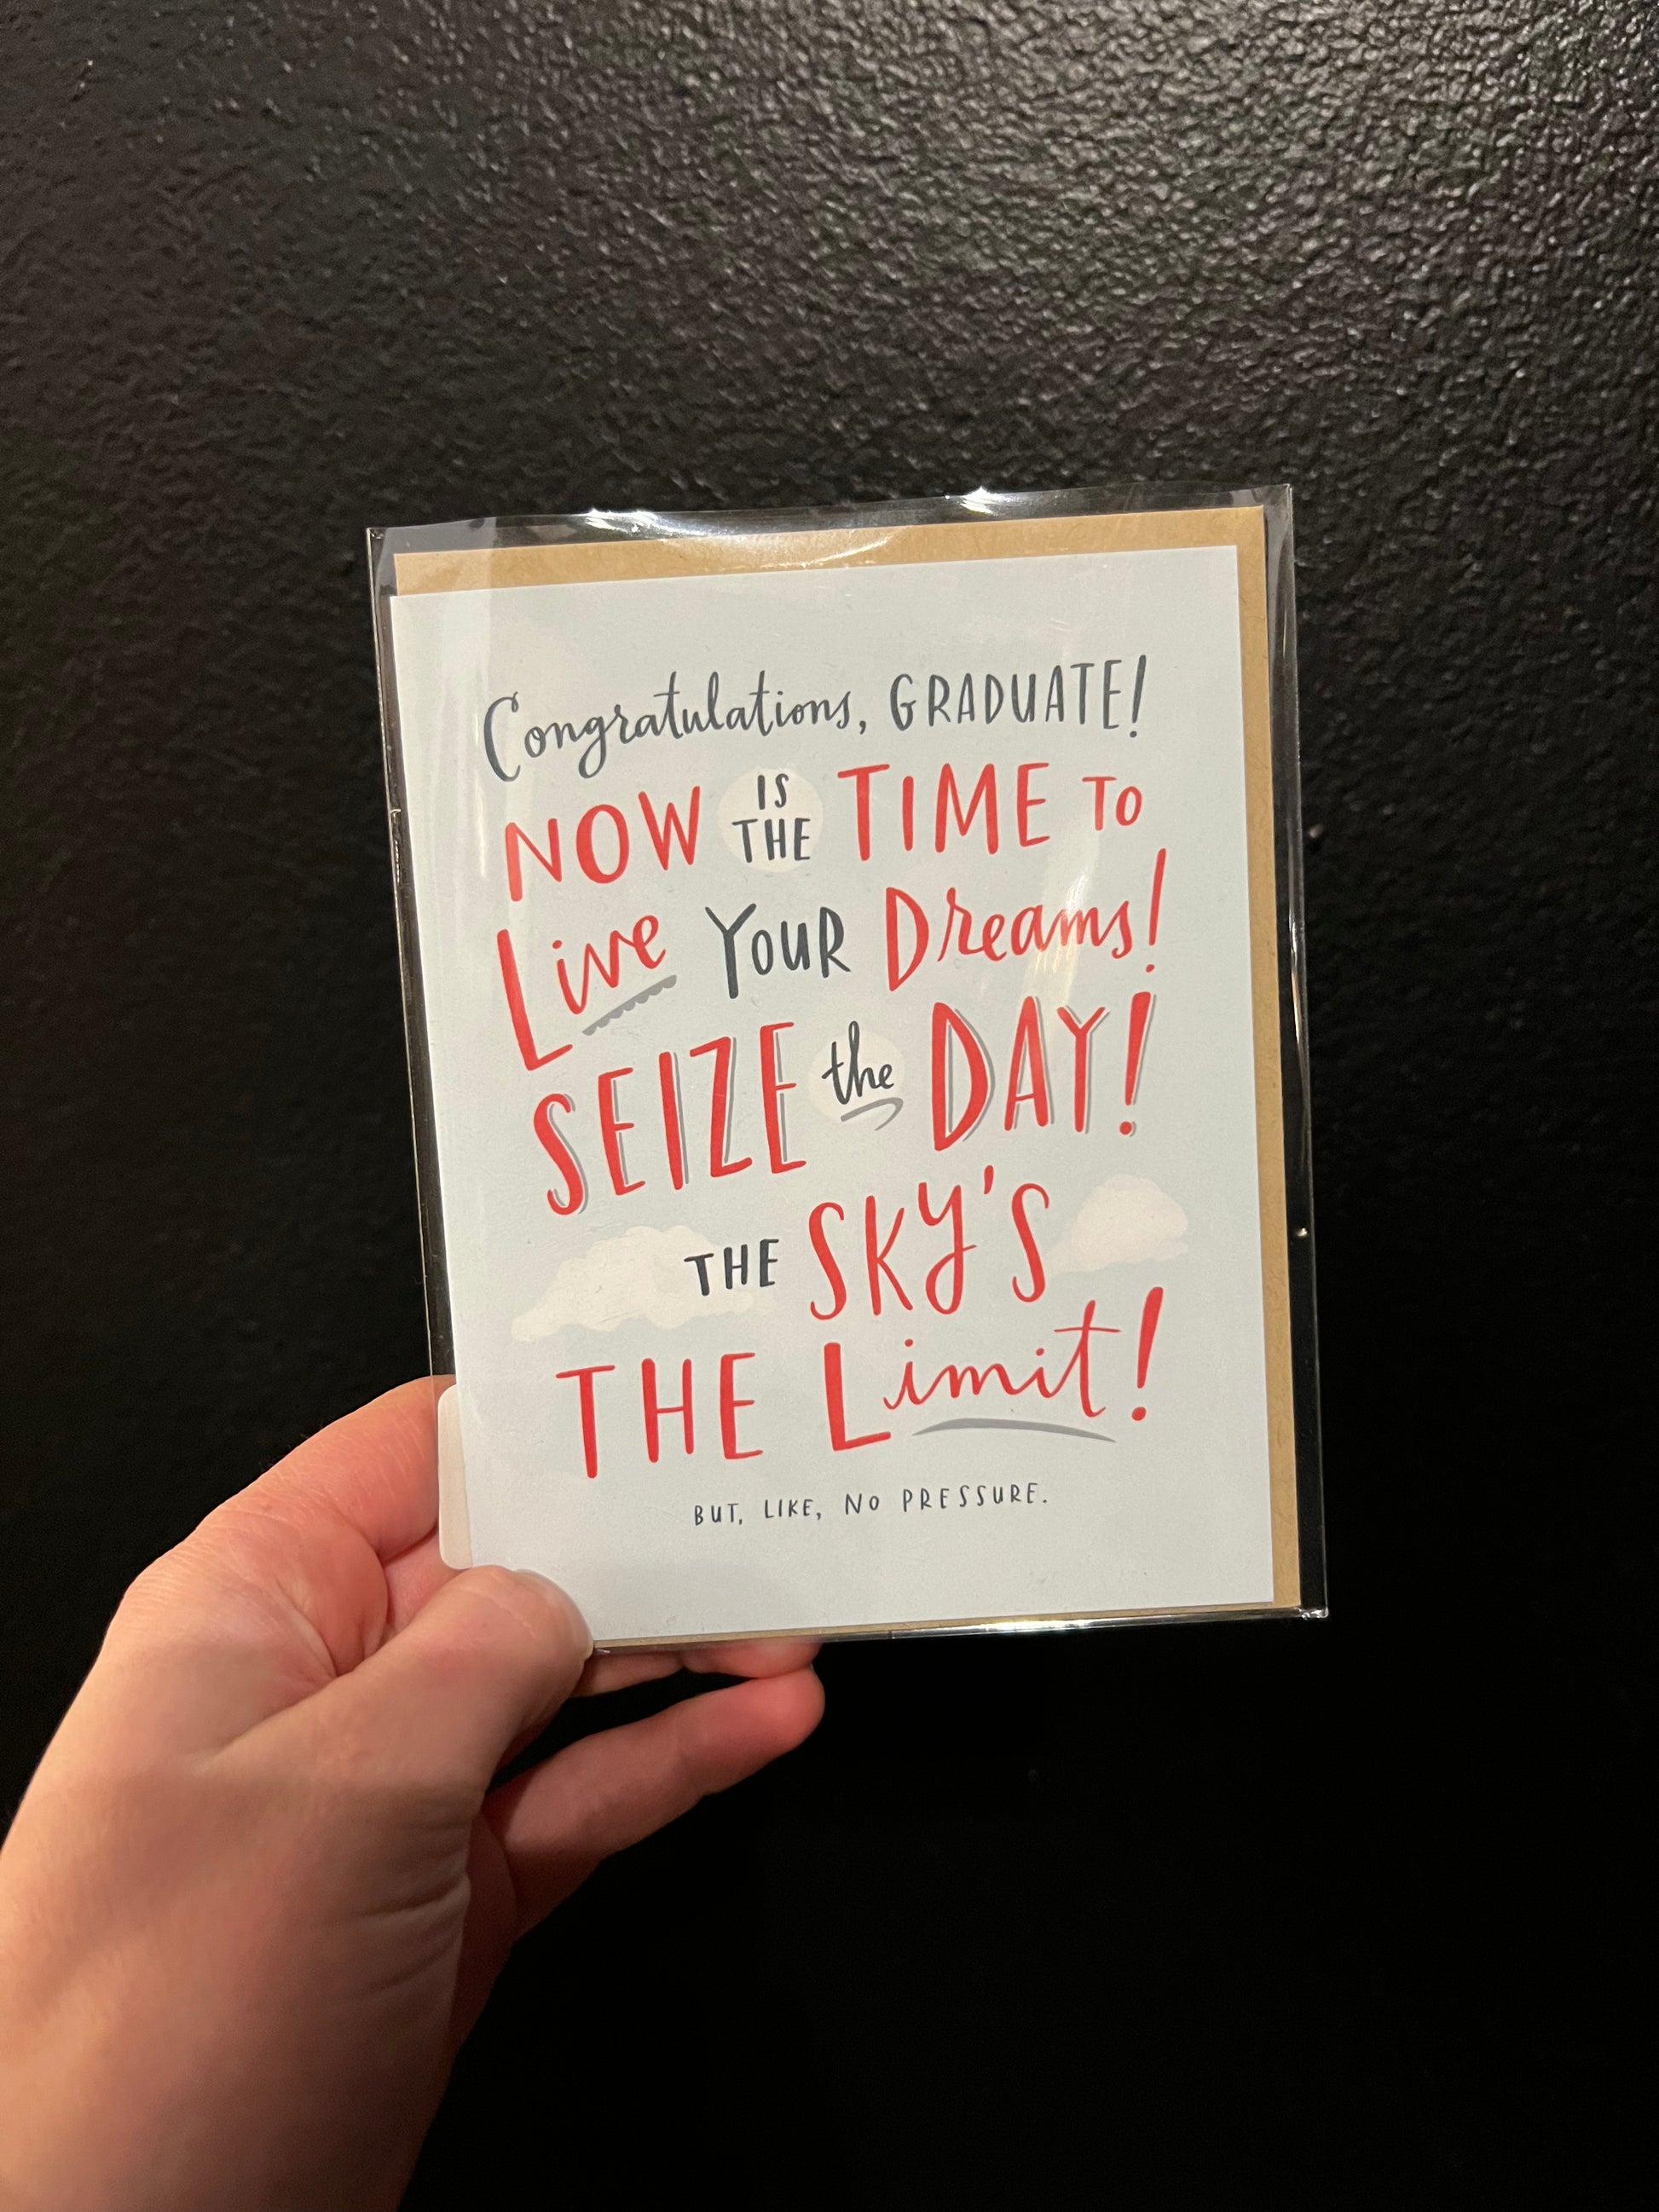 Congratulations, GRADUATE!
NOW IS THE TIME TO
Live YOUR Dreams!
SEIZE the DAY!
THE SKY'S
THE Limit!
BUT, LIKE, NO PRESSURE.